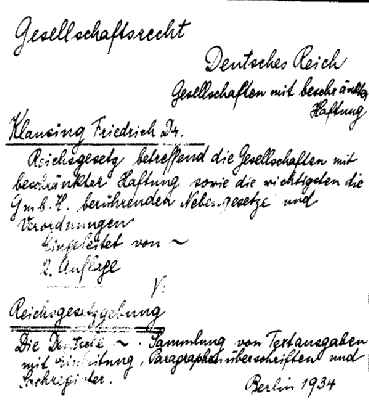 Gesellschaftsrecht
Deutsches Reich
Gesellschaften mit beschränkter
Haftung
Klausing Friedrich Dr.
Reichsgesetz betreffend die Gesellschaften mit
beschränkter Haftung sowie die wichtigsten die
G.m.b.H. berührenden Nebengesetze und
Verordnungen
Eingeleitet von ~
2. Auflage
V:
Reichsgesetzgebung
Die Deutsche ~. Sammlung von Textausgaben
mit Einleitung, Paragraphenüberschriften und
Sachregister.
Berlin 1934